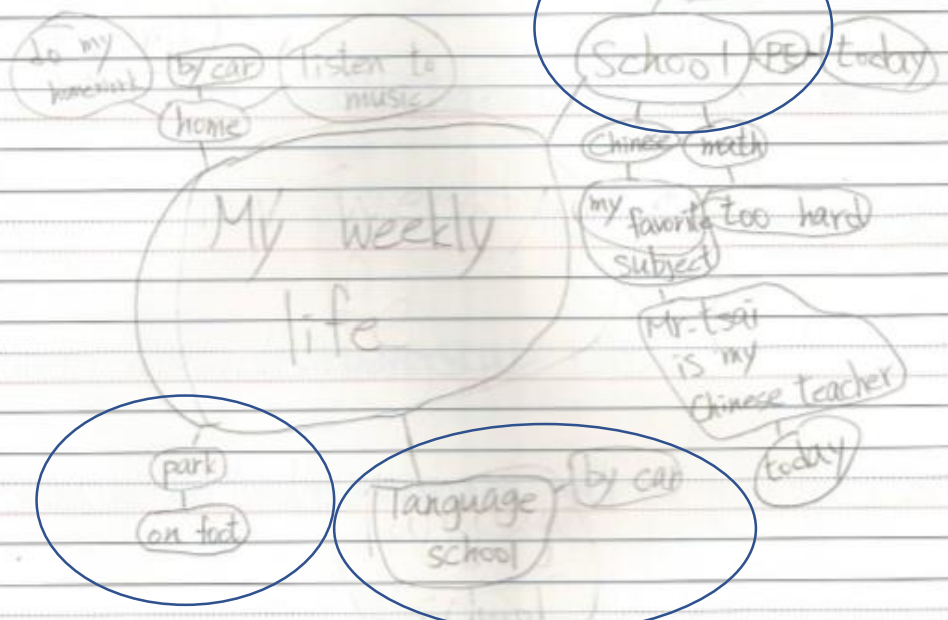 do my
homework
by car
listen to
music
home
School
PE
today
Chinese
math
my
favorite
subject
too hard
My weekly
life
Mr. tsai
is my
Chinese teacher
today
park
on foot
language
school
by car